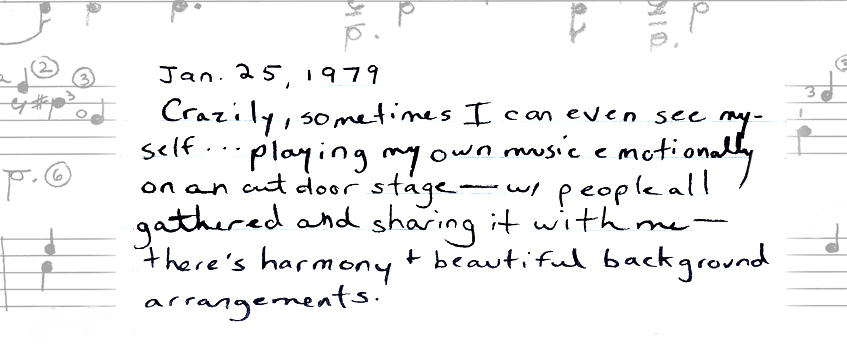 Jan. 25, 1979
Crazily, sometimes I can even see my-
self... playing my own music emotionally
on an outdoor stage — w/ people all
gathered and sharing it with me —
there's harmony + beautiful background
arrangements.